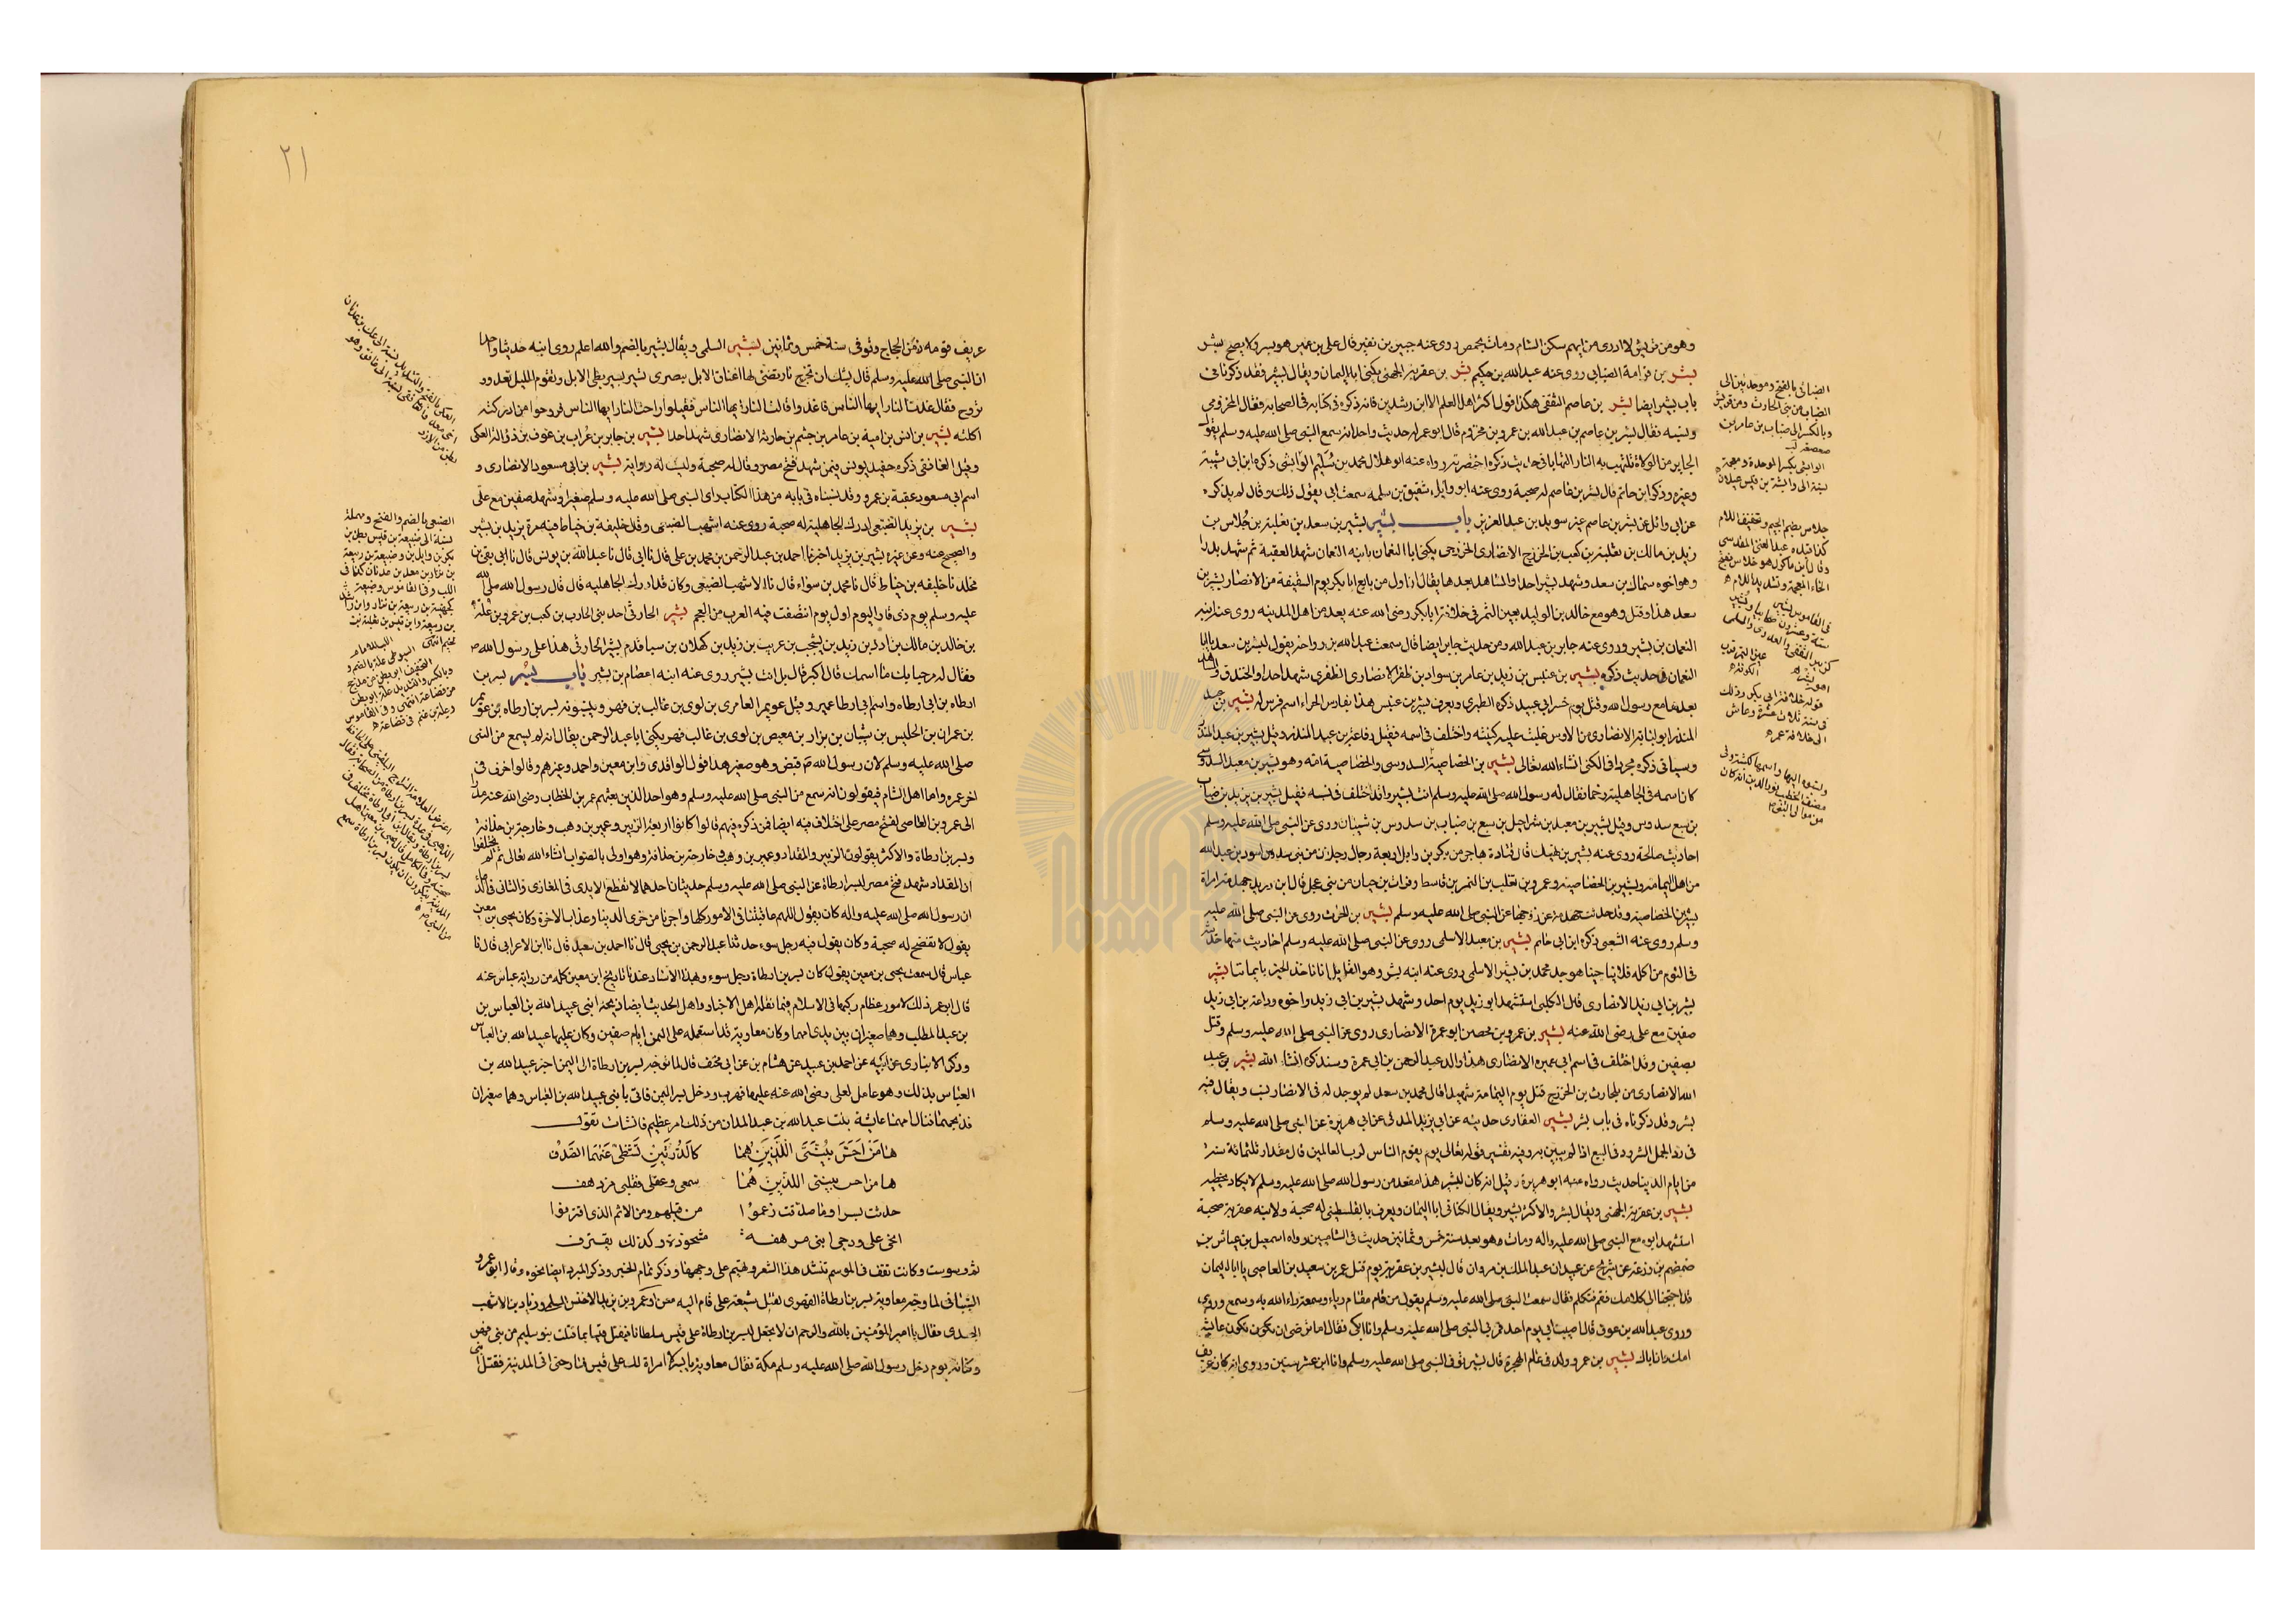 وهو من قريش لا ادرى من ايهم سكن الشام ومات بحمص روى عنه جبير بن نفير قال على بن عمر هو بسر ولا يصح بشر
بشر بن قدامة الضبابى روى عنه عبدالله بن حكيم بشر بن عقربة الجهنى يكنى ابا اليمان ويقال بشير فقد ذكرناه فى
باب بشير ايضا بشر بن عاصم الثقفى هكذا قول اكثر اهل العلم الا ابن رشدين فانه ذكره فى كتابه فى الصحابه فقال المخزومى
ونسبه فقال بشر بن عاصم بن عبدالله بن عمرو بن مخزوم قال ابو عمر له حديث واحد انه سمع النبى صلى الله عليه وسلم يقول
الجاير من الولاة تلتهب به النار التهابا فى حديث ذكره اختصرته رواه عنه ابو هلال محمد بن سليم الراسبى ذكره ابن ابى شيبة
وغيره وذكر ابن ابى حاتم قال بشر بن عاصم له صحبة روى عنه ابو وايل شقيق بن سلمه سمعت ابى يقول ذلك وقال لم يذكره
عن ابى وائل عن بشر بن عاصم غير سويد بن عبد العزيز باب بشير بشير بن سعد بن ثعلبة بن جُلاس بن
زيد بن مالك بن ثعلبة بن كعب بن الخزرج الانصارى الخزرجى يكنى ابا النعمان بابنه النعمان شهد العقبة ثم شهد بدرا
وهو اخوه سماك بن سعد وشهد بشير احدا والمشاهد بعدها يقال انه اول من بايع ابا بكر يوم السقيفة من الانصار بشير بن
سعد هذا وقتل وهو مع خالد بن الوليد بعين التمر فى خلافة ابا بكر رضى الله عنه يعد من اهل المدينه روى عنه ابنه
النعمان بن بشير وروى عنه جابر بن عبدالله ومن حديث جابر ايضا قال سمعت عبدالله بن رواحة يقول لبشير بن سعد يا ابا
النعمان فى حديث ذكره بشير بن عنبس بن زيد بن عامر بن سواد بن ظفر الانصارى الظفرى شهد احدا والخندق والمشاهد
بعدها مع رسول الله وقتل يوم جسر ابى عبيد ذكره الطبرى ويعرف بشير بن عنبس هذا بفارس الحواء اسم فرس له بشير بن عبد
المنذر ابو لبابة الانصارى من الاوس غلبت عليه كنيته واختلف فى اسمه فقيل رفاعة بن عبد المنذر وقيل بشير بن عبد المنذر
وسياتى ذكره مجردا فى الكنى انشاء الله تعالى بشير بن الخصاصية السدوسى والخصاصية امه وهو بشير بن معبد السدوسى
كان اسمه فى الجاهلية زحما فقال له رسول الله صلى الله عليه وسلم انت بشير وقد اختلف فى نسبه فقيل بشير بن يزيد بن ضباب
بن سبع سدوس وقيل بشير بن معبد بن شراحيل بن سبع بن ضباب بن سدوس بن شيبان روى عن النبى صلى الله عليه وسلم
احاديث صالحة روى عنه بشير بن نهيك قال قتادة هاجر من بكر بن وايل اربعة رجال رجلان من بنى سدوس اسود بن عبدالله
من اهل اليمامه وبشير بن الخصاصية وعمرو بن تغلب بن النمر بن قاسط وفرات بن حيان من بنى عجل قال ابن دريد جهدمة امراة
بشير بن الخصاصية وقد حدثت جهدمة عن زوجها عن النبى صلى الله عليه وسلم بشير بن الحرث روى عن النبى صلى الله عليه
وسلم روى عنه الشعبى ذكره ابن ابى حاتم بشير بن معبد الاسلمى روى عن النبى صلى الله عليه وسلم احاديث منها حديثه
فى الثوم من اكله فلا يناجينا هو جد محمد بن بشر الاسلمى روى عنه ابنه بشر وهو القايل انا ناخذ الخير بايماننا بشير
بشير بن ابى زيد الانصارى قال الكلبى استشهد ابو زيد يوم احد وشهد بشير بن ابى زيد واخوه وداعة بن ابى زيد
صفين مع على رضى الله عنه بشير بن عمرو بن محصن ابو عمرة الانصارى روى عن النبى صلى الله عليه وسلم وقتل
بصفين وقد اختلف فى اسم ابى عميره الانصارى هذا والد عبد الرحمن بن ابى عمرة وسنذكره انشاء الله بشير بن عبد
الله الانصارى من بلحارث بن الخزرج قتل يوم اليمامة شهيدا قال محمد بن سعد لم يوجد له فى الانصار نسب ويقال فيه
بشر وقد ذكرناه فى باب بشر بشير الغفارى حديثه عن ابى يزيد المدنى عن ابى هريرة عن النبى صلى الله عليه وسلم
فى رد الجمل الشرود فى البيع اذا لم يبين به وفيه تفسير قوله تعالى يوم يقوم الناس لرب العالمين قال مقدار ثلثمائة سنة
من ايام الدينا حديث رواه عنه ابو هريرة وقيل انه كان لبشير هذا مقعد من رسول الله صلى الله عليه وسلم لا يكاد يخطيه
بشير بن عقربة الجهنى ويقال بشر والاكثر بشير ويقال الكنانى ابا اليمان ويعرف بالفلسطينى له صحبة ولابيه عقربة صحبة
استشهد ابوه مع النبى صلى الله عليه واله ومات وهو بعد سنة خمس وثمانين حديث فى الشاميين رواه اسمعيل بن عياش بن
ضمضم بن زرعة عن شريح بن عبيد ان عبد الملك بن مروان قال لبشير بن عقربة يوم قتل عمر بن سعيد بن العاصى يا ابا اليمان
قد احتجنا الى كلامك فقم فتكلم فقال سمعت النبى صلى الله عليه وسلم يقول من قام مقام رياء وسمعة راءا الله به وسمع وروى
وروى عبدالله بن عوف قال اصيب ابى يوم احد فمر بى النبى صلى الله عليه وسلم وانا ابكى فقال اما ترضى ان تكون عايشه
امك وانا اباك بشير بن عمرو ولد فى عام الهجرة قال بشير توفى النبى صلى الله عليه وسلم وانا ابن عشر سنين وروى انه كان عريف
الضبابى بالفتح وموحدتين الى
الضباب من بنى الحارث ومن قريش
وبالكسر الى ضباب بن عامر بن
صعصعة لب
الوابشى بكسر الموحدة ومعجمة
نسبة الى وابشة بن قيس عيلان
جلاس بضم الجيم وتخفيف اللام
كذا قيده عبد الغنى المقدسى
وقال ابن ماكولا هو خلاس بفتح
الخاء المعجمة وتشديد اللام
فى القاموس بشير
ستة وعشرون صحابيا
قوله خلافة ابى بكر وذلك
فى سنة ثلاث عشرة وعاش
الى خلافة عمر
٢١
عريف قومه زمن الحجاج وتوفى سنة خمس وثمانين بشير السلمى ويقال بشير بالضم والله اعلم روى ابنه حديثا واحدا
ان النبى صلى الله عليه وسلم قال يوشك ان تخرج نار تضئى لها اعناق الابل ببصرى تسير بسير بطى الابل وتقوم الليل تغدو و
تروح فقال غدت النار ايها الناس فاغدوا قالت النار ايها الناس فقيلوا راحت النار ايها الناس فروحوا من ادركته
اكلته بشير بن انس بن امية بن عامر بن جشم بن حارثة الانصارى شهد احدا بشير بن جابر بن غراب بن عوف بن ذوالة العكى
وقيل الغافقى ذكره حفيد يونس فيمن شهد فتح مصر وقال له صحبة وليس له رواية بشير بن ابى مسعود الانصارى و
اسم ابى مسعود عقبة بن عمرو وقد نسبناه فى بابه من هذا الكتاب راى النبى صلى الله عليه وسلم صغيرا وشهد صفين مع على
بشير بن يزيد الضبعى ادرك الجاهلية له صحبة روى عنه اشهب الضبعى وقال خليفة بن خياط فيه مرة يزيد بن بشير
والصحيح عنه وعن غيره بشير بن يزيد اخبرنا احمد بن عبد الرحمن بن محمد بن على قال نا ابى قال نا عبدالله بن يونس قال نا ابى بقى بن
مخلد نا خليفه بن خياط قال نا محمد بن سواء قال نا الاشهب الضبعى وكان قد ادرك الجاهليه قال قال رسول الله صلى الله
عليه وسلم يوم ذى قار اليوم اول يوم انتصفت فيه العرب من العجم بشير الحارثى احد بنى الحارث بن كعب بن عمرو بن علة
بن خالد بن مالك بن ادد بن زيد بن يشجب بن عريب بن زيد بن كهلان بن سبا قدم بشير الحارثى هذا على رسول الله ص
فقال له مرحبا بك ما اسمك قال اكبر قال بل انت بشير روى عنه ابنه عصام بن بشير باب بسر بسر بن
ارطاه بن ابى ارطاه واسم ابى ارطا عمير وقيل عويمر العامرى بن لوى بن غالب بن فهر وينسبونه بسر بن ارطاه بن عويمر
بن عمران بن الحليس بن شيبان بن نزار بن معيص بن لوى بن غالب فهر يكنى ابا عبد الرحمن يقال انه لم يسمع من النبى
صلى الله عليه وسلم لان رسول الله ص قبض وهو صغير هذا قول الواقدى وابن معين واحمد وغيرهم وقالوا خرف فى
اخر عمره واما اهل الشام فيقولون انه سمع من النبى صلى الله عليه وسلم وهو احد الذين بعثهم عمر بن الخطاب رضى الله عنه مددا
الى عمرو بن العاصى لفتح مصر على اختلاف فيه ايضا فمن ذكره فيهم قالوا كانوا اربعة الزبير وعمير بن وهب وخارجة بن حذافة
وبسر بن ارطاة والاكثر يقولون الزبير والمقداد وعمير بن وهب وخارجة بن حذافة وهو اولى بالصواب انشاء الله تعالى ثم لم يختلفوا
ان المقداد شهد فتح مصر لبسر ارطاة عن النبى صلى الله عليه وسلم حديثان احدهما لا تقطع الايدى فى المغازى والثانى فى الدعاء
ان رسول الله صلى الله عليه واله كان يقول اللهم عاقبتنا فى الامور كلها واجرنا من خزى الدينا وعذاب الاخرة وكان يحيى بن معين
يقول لا تصح له صحبة وكان يقول فيه رجل سوء حدثنا عبد الرحمن بن يحيى قال نا احمد بن سعيد قال نا ابن الاعرابى قال نا
عباس قال سمعت يحيى بن معين يقول كان بسر بن ارطاة رجل سوء وهذا الاسناد عندنا تاريخ ابن معين كله من رواية عباس عنه
قال ابو عمر ذلك لامور عظام ركبها فى الاسلام فيما نقله اهل الاخبار واهل الحديث ايضا ذبحه ابنى عبيد الله بن العباس بن
بن عبد المطلب وهما صغيران بين يدى امهما وكان معاوية قد استعمله على اليمن ايام صفين وكان عليها عبيد الله بن العباس
وذكر الانبارى عن ابيه عن احمد بن عبيد عن هشام بن عن ابى مخنف قال لما توجه بسر بن ارطاة الى اليمن اخبر عبيد الله بن
العباس بذلك وهو عامل لعلى رضى الله عنه عليها فهرب ودخل بسر اليمن فاتى بابنى عبيد الله بن العباس وهما صغيران
فذبحهما فنال امهما عايشة بنت عبدالله بن عبد المدان من ذلك امر عظيم فانشات تقول
ها من احس بنيى اللذين هما كالدرتين تشظى عنهما الصدف
ها من احس بنيى اللذين هما سمعى وعقلى فقلبى مزدهف
حدثت بسرا وما صدقت زعموا من قيلهم ومن الاثم الذى اقترفوا
انحى على ودجى ابنى مرهفة مشحوذة وكذلك يقترف
ثم وسوست وكانت تقف فى الموسم تنشد هذا الشعر وتهيم على وجهها وذكر تمام الخبر وذكر المبرد ايضا نحوه وقال ابو عمرو
الشيبانى لما وجه معاوية بسر بن ارطاة الفهرى لقتل شيعة على قام اليه معن او عمرو بن يزيد الاخنس السلمى وزياد بن الاشهب
الجعدى فقال يا امير المؤمنين بالله والرحم ان لا يجعل لبسر بن ارطاة على قيس سلطانا فيقتل فيها بما قتلت بنو سليم من بنى فهر
وكنانه يوم دخل رسول الله صلى الله عليه وسلم مكة فقال معاوية يا بسر لا امراة لك على قيس فسار حتى اتى المدينة فقتل ابنى
العكى بالفتح والتشديد نسبة الى عك بن عدنان
الضبعى بالضم والفتح ومهملة
نسبة الى ضبيعة بن قيس بطن من
بكر بن وايل بن وضبيعة بن ربيعة
بن نزار بن معد بن عدنان كذا فى
اللب وفى القاموس وضبيعة